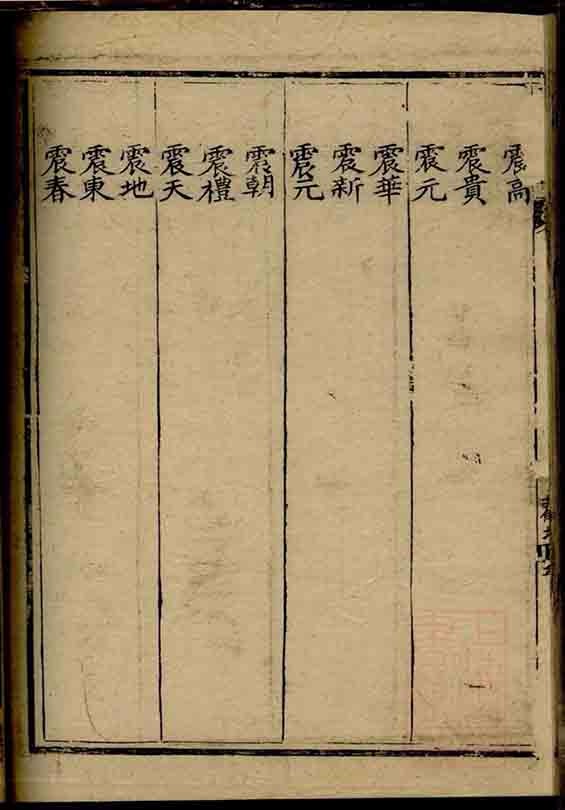 震高
震貴
震元
震華
震新
震元
震朝
震禮
震天
震地
震東
震春